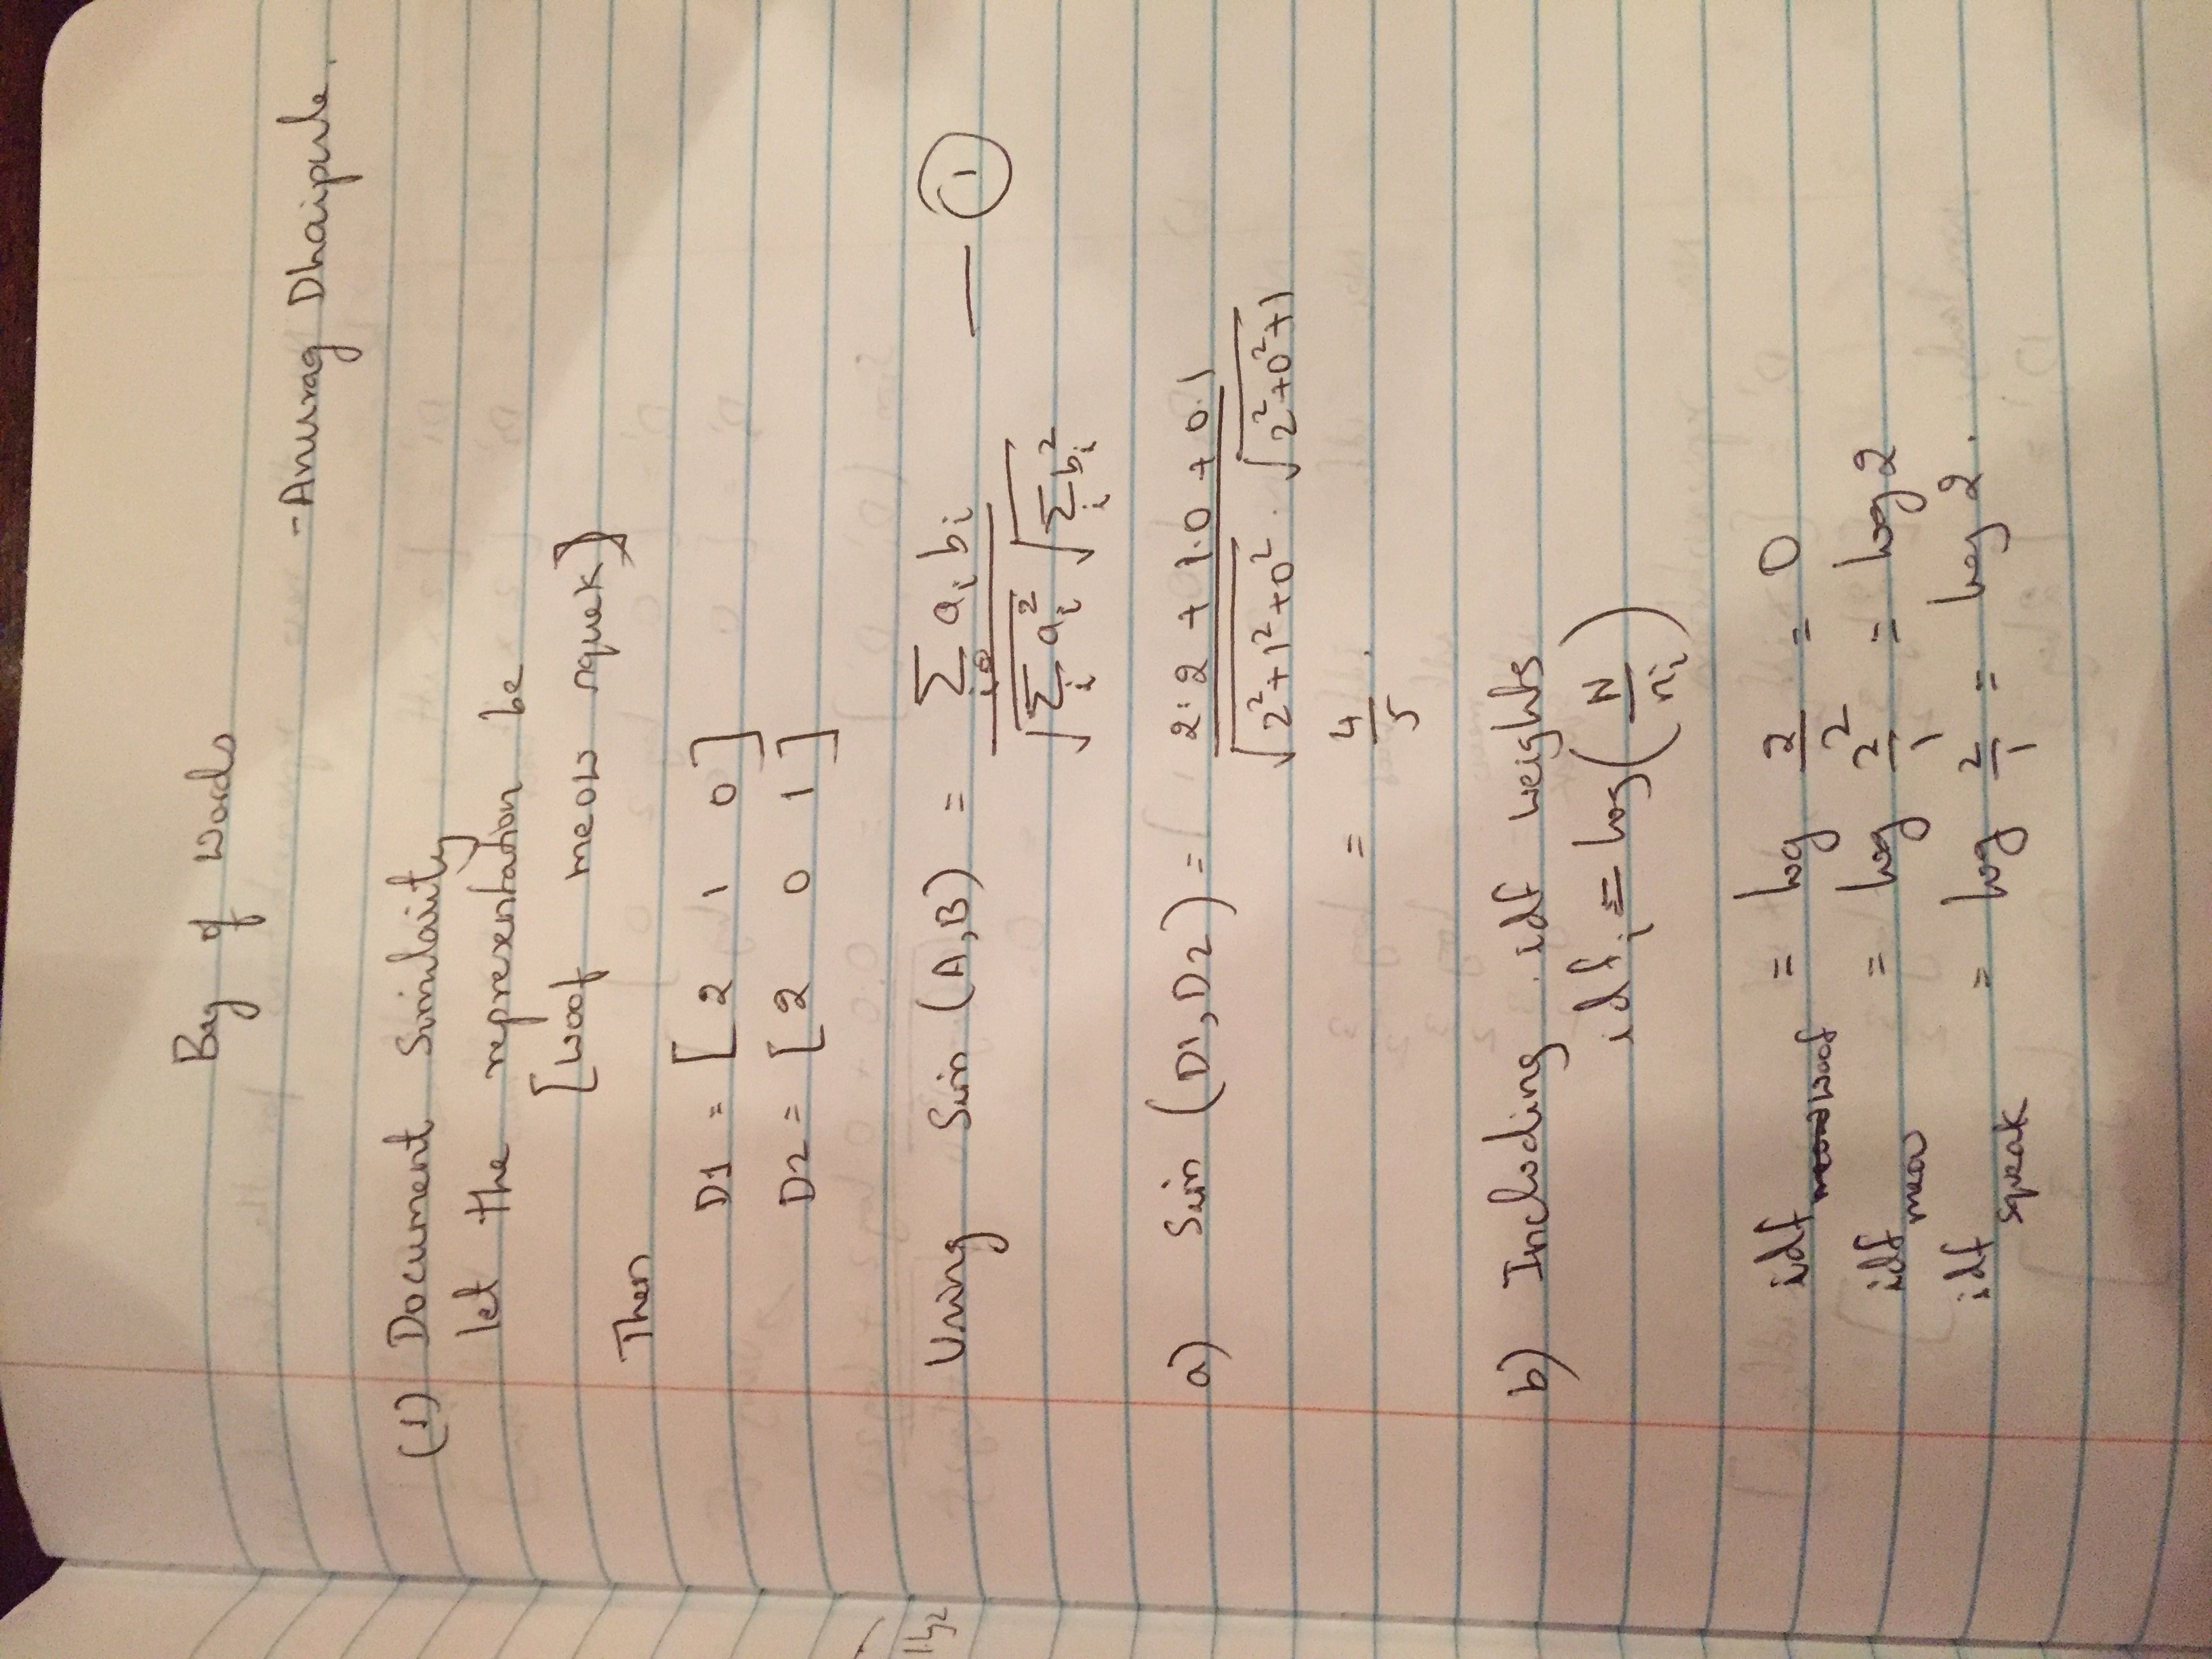 Bag of Words
-Anurag Dhaipule.
(1) Document Similarity
let the representation be
[woof meow squek]
Then
D1 = [ 2 1 0 ]
D2 = [ 2 0 1 ]
Using Sim (A,B) = ∑_i a_i b_i / √(∑_i a_i^2) √(∑_i b_i^2) — ①
a) Sim (D1, D2) = 2.2 + 1.0 + 0.1 / √(2²+1²+0²) . √(2²+0²+1)
= 4/5 .
b) Including idf weights
idf_i = log (N/n_i)
idf_woof = log 2/2 = 0
idf_meow = log 2/1 = log 2
idf_squeak = log 2/1 = log 2.